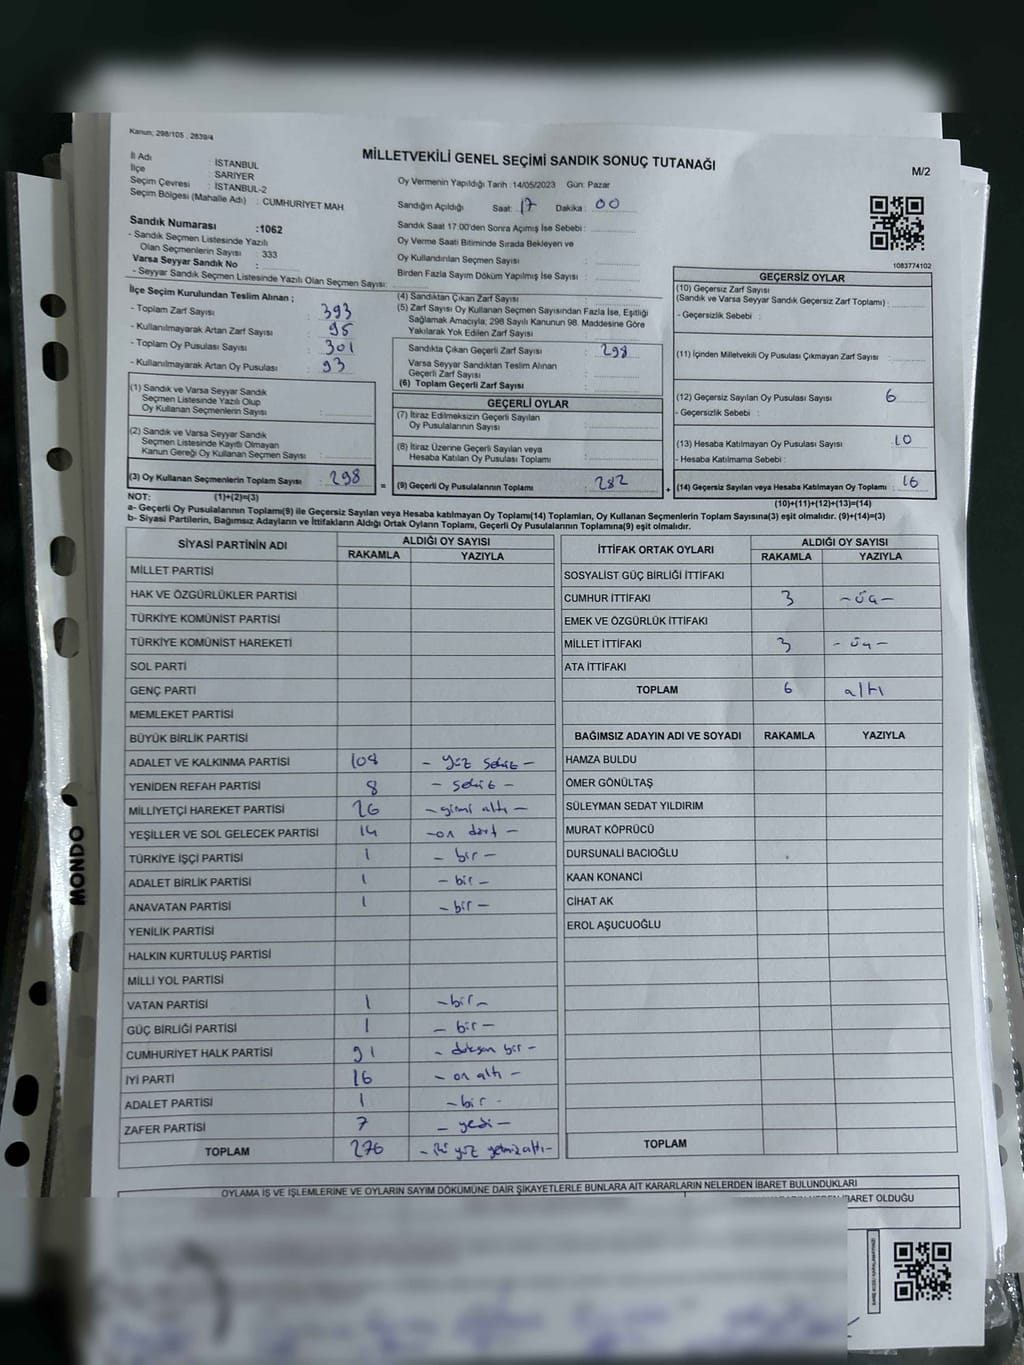 Kanun; 298/105 , 2839/4
MİLLETVEKİLİ GENEL SEÇİMİ SANDIK SONUÇ TUTANAĞI
M/2
İl Adı : İSTANBUL
İlçe : SARIYER
Seçim Çevresi : İSTANBUL-2
Seçim Bölgesi (Mahalle Adı) : CUMHURİYET MAH.
Oy Vermenin Yapıldığı Tarih :14/05/2023 Gün: Pazar
Sandığın Açıldığı Saat: 17 Dakika : 00
Sandık Saat 17:00'den Sonra Açımış İse Sebebi :
Oy Verme Saati Bitiminde Sırada Bekleyen ve
Oy Kullandırılan Seçmen Sayısı :
Birden Fazla Sayım Döküm Yapılmış İse Sayısı :
1083774102
Sandık Numarası :1062
- Sandık Seçmen Listesinde Yazılı
Olan Seçmenlerin Sayısı : 333
Varsa Seyyar Sandık No :
- Seyyar Sandık Seçmen Listesinde Yazılı Olan Seçmen Sayısı:
İlçe Seçim Kurulundan Teslim Alınan ;
- Toplam Zarf Sayısı : 393
- Kullanılmayarak Artan Zarf Sayısı : 95
- Toplam Oy Pusulası Sayısı : 301
- Kullanılmayarak Artan Oy Pusulası : 93
(1) Sandık ve Varsa Seyyar Sandık
Seçmen Listesinde Yazılı Olup
Oy Kullanan Seçmenlerin Sayısı :
(2) Sandık ve Varsa Seyyar Sandık
Seçmen Listesinde Kayıtlı Olmayan
Kanun Gereği Oy Kullanan Seçmen Sayısı :
(3) Oy Kullanan Seçmenlerin Toplam Sayısı : 298
(4) Sandıktan Çıkan Zarf Sayısı :
(5) Zarf Sayısı Oy Kullanan Seçmen Sayısından Fazla İse, Eşitliği
Sağlamak Amacıyla, 298 Sayılı Kanunun 98. Maddesine Göre
Yakılarak Yok Edilen Zarf Sayısı :
Sandıkta Çıkan Geçerli Zarf Sayısı : 298
Varsa Seyyar Sandıktan Teslim Alınan
Geçerli Zarf Sayısı :
(6) Toplam Geçerli Zarf Sayısı :
GEÇERLİ OYLAR
(7) İtiraz Edilmeksizin Geçerli Sayılan
Oy Pusulalarının Sayısı :
(8) İtiraz Üzerine Geçerli Sayılan veya
Hesaba Katılan Oy Pusulası Toplamı :
= (9) Geçerli Oy Pusulalarının Toplamı : 282
GEÇERSİZ OYLAR
(10) Geçersiz Zarf Sayısı
(Sandık ve Varsa Seyyar Sandık Geçersiz Zarf Toplamı) :
- Geçersizlik Sebebi :
(11) İçinden Milletvekili Oy Pusulası Çıkmayan Zarf Sayısı :
(12) Geçersiz Sayılan Oy Pusulası Sayısı : 6
- Geçersizlik Sebebi :
(13) Hesaba Katılmayan Oy Pusulası Sayısı : 10
- Hesaba Katılmama Sebebi :
+ (14) Geçersiz Sayılan veya Hesaba Katılmayan Oy Toplamı : 16
NOT: (1)+(2)=(3)
(10)+(11)+(12)+(13)=(14)
a- Geçerli Oy Pusulalarının Toplamı(9) ile Geçersiz Sayılan veya Hesaba katılmayan Oy Toplamı(14) Toplamları, Oy Kullanan Seçmenlerin Toplam Sayısına(3) eşit olmalıdır. (9)+(14)=(3)
b- Siyasi Partilerin, Bağımsız Adayların ve İttifakların Aldığı Ortak Oyların Toplamı, Geçerli Oy Pusulalarının Toplamına(9) eşit olmalıdır.
SİYASİ PARTİNİN ADI ALDIĞI OY SAYISI
RAKAMLA YAZIYLA
MİLLET PARTİSİ
HAK VE ÖZGÜRLÜKLER PARTİSİ
TÜRKİYE KOMÜNİST PARTİSİ
TÜRKİYE KOMÜNİST HAREKETİ
SOL PARTİ
GENÇ PARTİ
MEMLEKET PARTİSİ
BÜYÜK BİRLİK PARTİSİ
ADALET VE KALKINMA PARTİSİ 108 - yüz sekiz -
YENİDEN REFAH PARTİSİ 8 - sekiz -
MİLLİYETÇİ HAREKET PARTİSİ 26 - yirmi altı -
YEŞİLLER VE SOL GELECEK PARTİSİ 14 - on dört -
TÜRKİYE İŞÇİ PARTİSİ 1 - bir -
ADALET BİRLİK PARTİSİ 1 - bir -
ANAVATAN PARTİSİ 1 - bir -
YENİLİK PARTİSİ
HALKIN KURTULUŞ PARTİSİ
MİLLİ YOL PARTİSİ
VATAN PARTİSİ 1 - bir -
GÜÇ BİRLİĞİ PARTİSİ 1 - bir -
CUMHURİYET HALK PARTİSİ 91 - doksan bir -
İYİ PARTİ 16 - on altı -
ADALET PARTİSİ 1 - bir -
ZAFER PARTİSİ 7 - yedi -
TOPLAM 276 - iki yüz yetmiş altı -
İTTİFAK ORTAK OYLARI ALDIĞI OY SAYISI
RAKAMLA YAZIYLA
SOSYALİST GÜÇ BİRLİĞİ İTTİFAKI
CUMHUR İTTİFAKI 3 - üç -
EMEK VE ÖZGÜRLÜK İTTİFAKI
MİLLET İTTİFAKI 3 - üç -
ATA İTTİFAKI
TOPLAM 6 altı
BAĞIMSIZ ADAYIN ADI VE SOYADI RAKAMLA YAZIYLA
HAMZA BULDU
ÖMER GÖNÜLTAŞ
SÜLEYMAN SEDAT YILDIRIM
MURAT KÖPRÜCÜ
DURSUNALİ BACIOĞLU
KAAN KONANCİ
CİHAT AK
EROL AŞUCUOĞLU
TOPLAM
OYLAMA İŞ VE İŞLEMLERİNE VE OYLARIN SAYIM DÖKÜMÜNE DAİR ŞİKAYETLERLE BUNLARA AİT KARARLARIN NELERDEN İBARET BULUNDUKLARI
İBARET OLDUĞU
MONDO